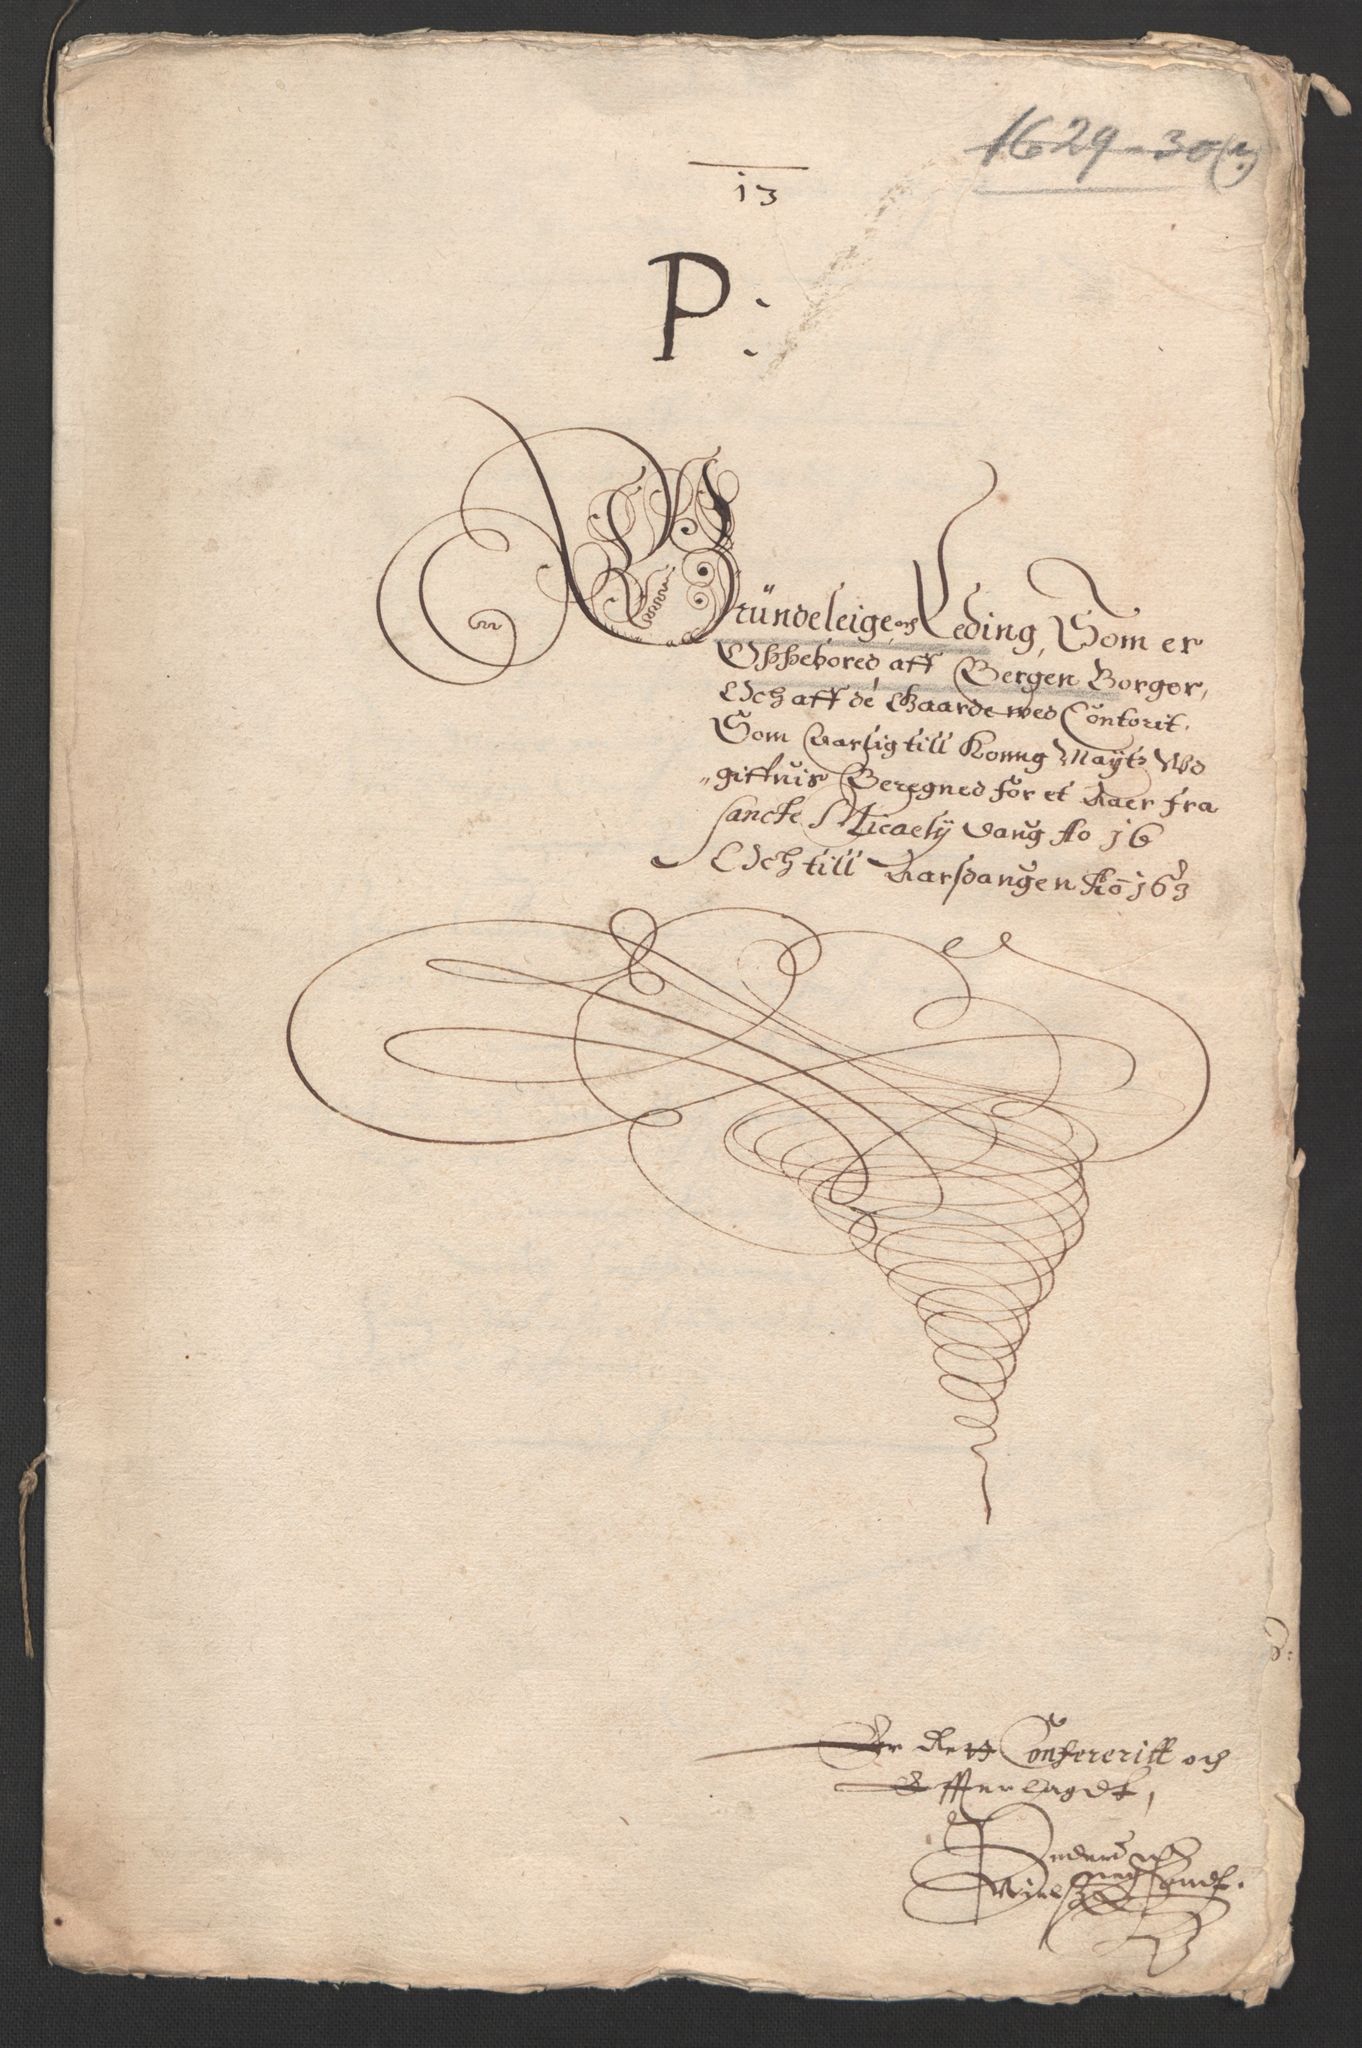 1629-30(?)
13
P:
Gründeleige och Leding, Som er
Oppebored aff Bergen Borger,
Och aff de Gaarde wed Contorit.
Som Aarlig till Konng Maytz Wd
"giffuis Beregned for et Aaer fra
Sancte Micaelij Dang Ao 16
Och till Aarsdangen Ao 163
Er Rett Confereritt och
offuerlagdt,